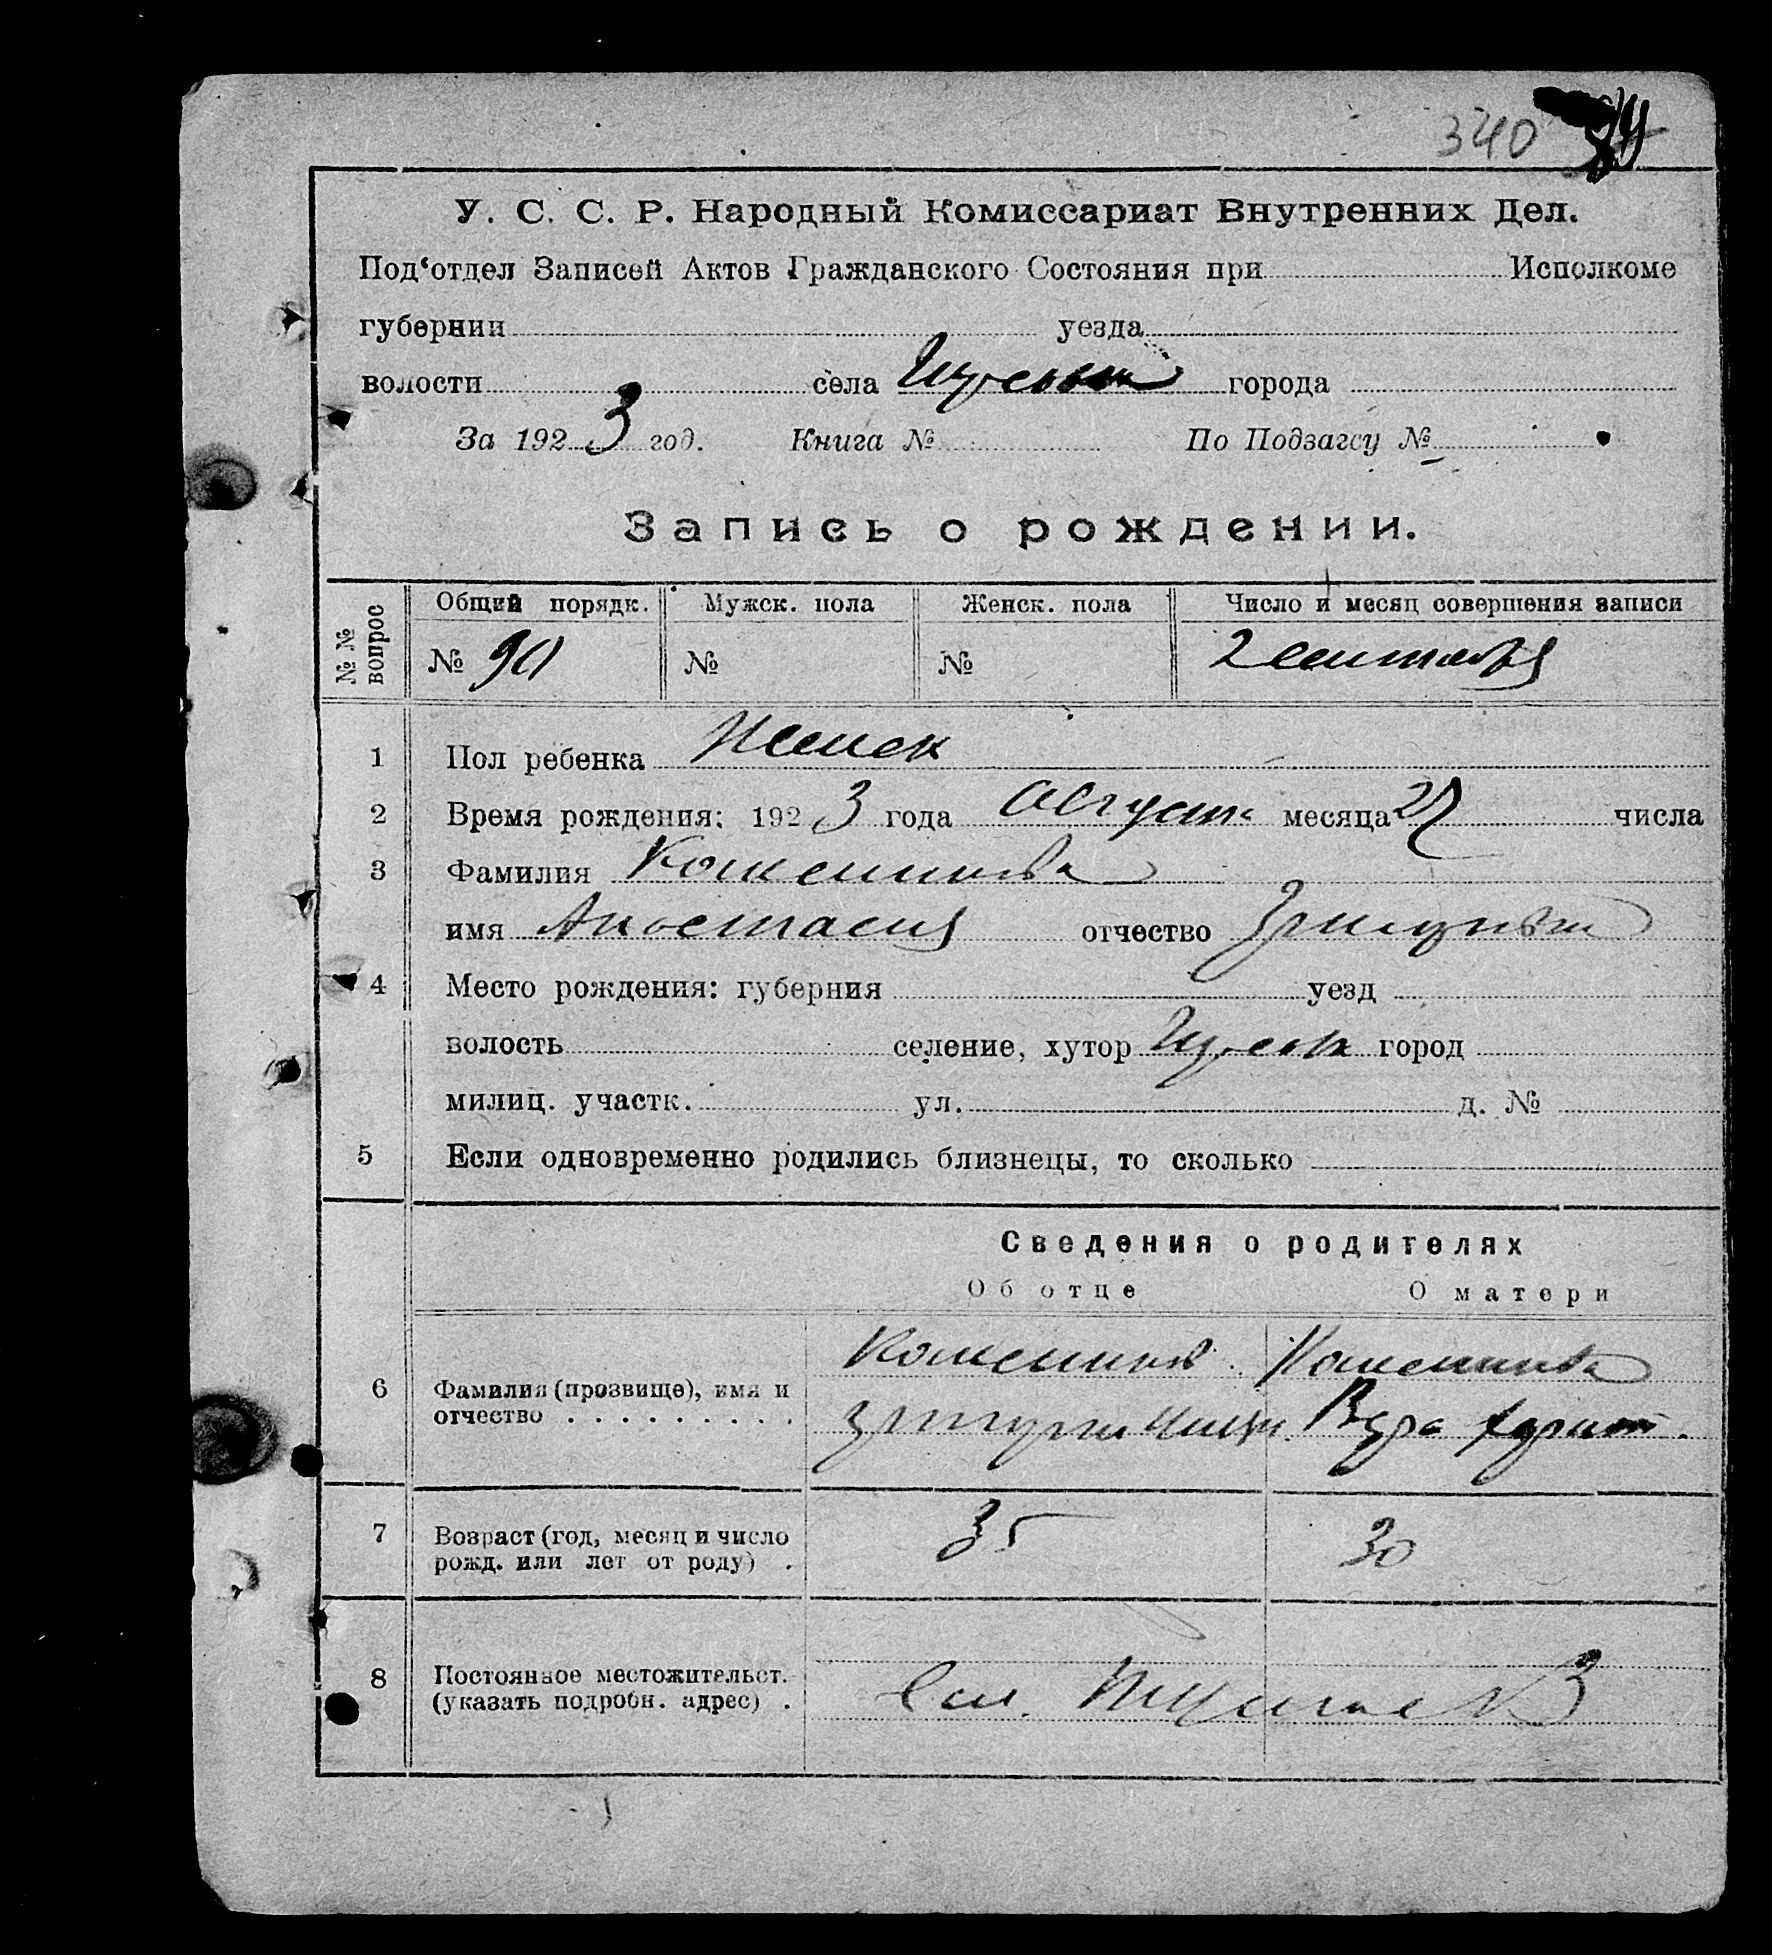 340
У. С. С. Р. Народный Комиссариат Внутренних Дел.
Под‘отдел Записей Актов Гражданского Состояния при Исполкоме
губернии уезда
волости села города
За 1923 год. Книга № По Подзагсу №
Запись о рождении.
№ № вопрос Общий порядк. Мужск. пола Женск. пола Число и месяц совершения записи
№ 90 № № 2 сентября
1 Пол ребенка Женск
2 Время рождения: 1923 года Августа месяца 27 числа
3 Фамилия
имя Анастасия отчество
4 Место рождения: губерния уезд
волость селение, хутор город
милиц. участк. ул. д. №
5 Если одновременно родились близнецы, то сколько
Сведения о родителях
Об отце О матери
6 Фамилия (прозвище), имя и
отчество . . . . . . . . . . Вера
7 Возраст (год, месяц и число 35 30
рожд. или лет от роду) .
8 Постоянное местожительст.
(указать подробн. адрес) .